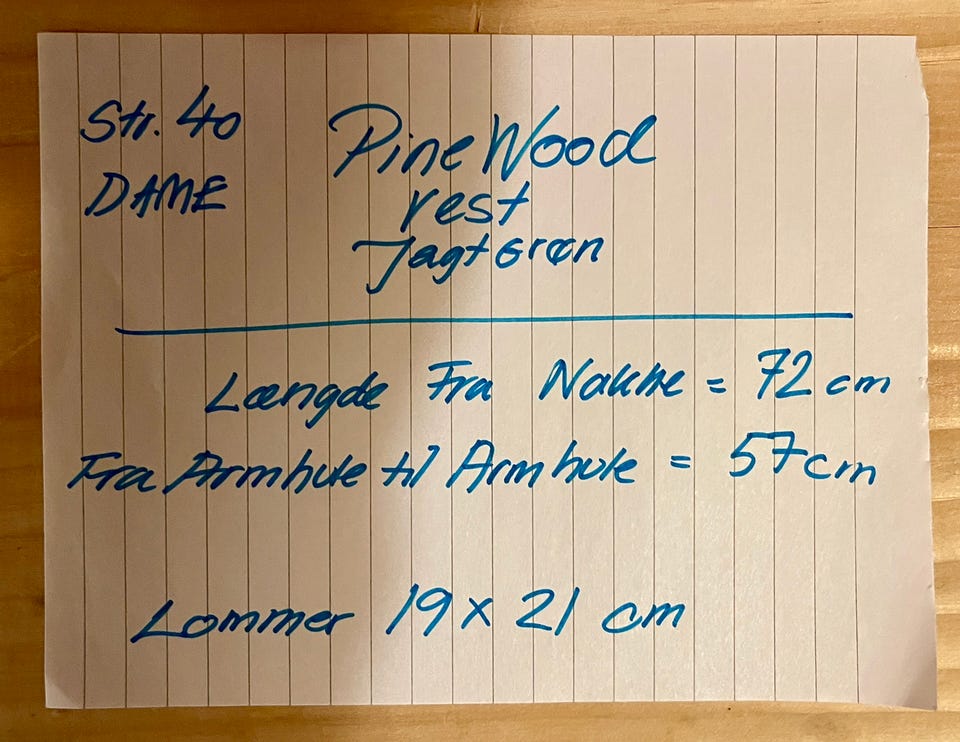 Str. 40
DAME
PineWood
vest
Jagt Grøn
Længde Fra Nakke = 72 cm
Fra Armhule til Armhule = 57 cm
Lommer 19 x 21 cm